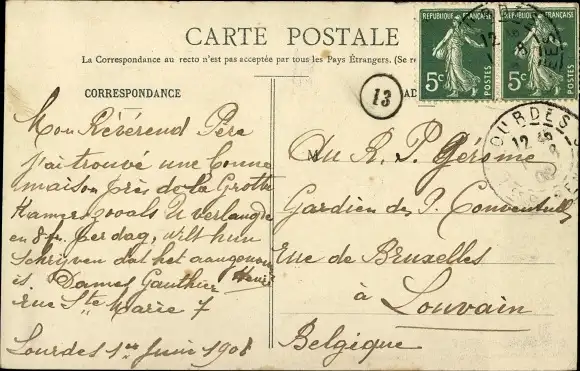 CARTE POSTALE
La Correspondance au recto n'est pas acceptée par tous les Pays Étrangers. (Se re
CORRESPONDANCE
13
AD
RÉPUBLIQUE FRANÇAISE
5c
POSTES
RÉPUBLIQUE FRANÇAISE
5c
POSTES
LOURDES
12
Mon Révérend Père
j'ai trouvé une bonne
maison près de la Grotte
Kamer zooals U verlangde
en 8 fr. per dag, wilt hun
schrijven dat het aangenomen
is. Dames Gauthier Henri
rue Ste Marie 7
Lourdes 1er Juin 1908
M
Au R. P. Gérome
Gardien des P. Conventuels
rue de Bruxelles
à Louvain
Belgique